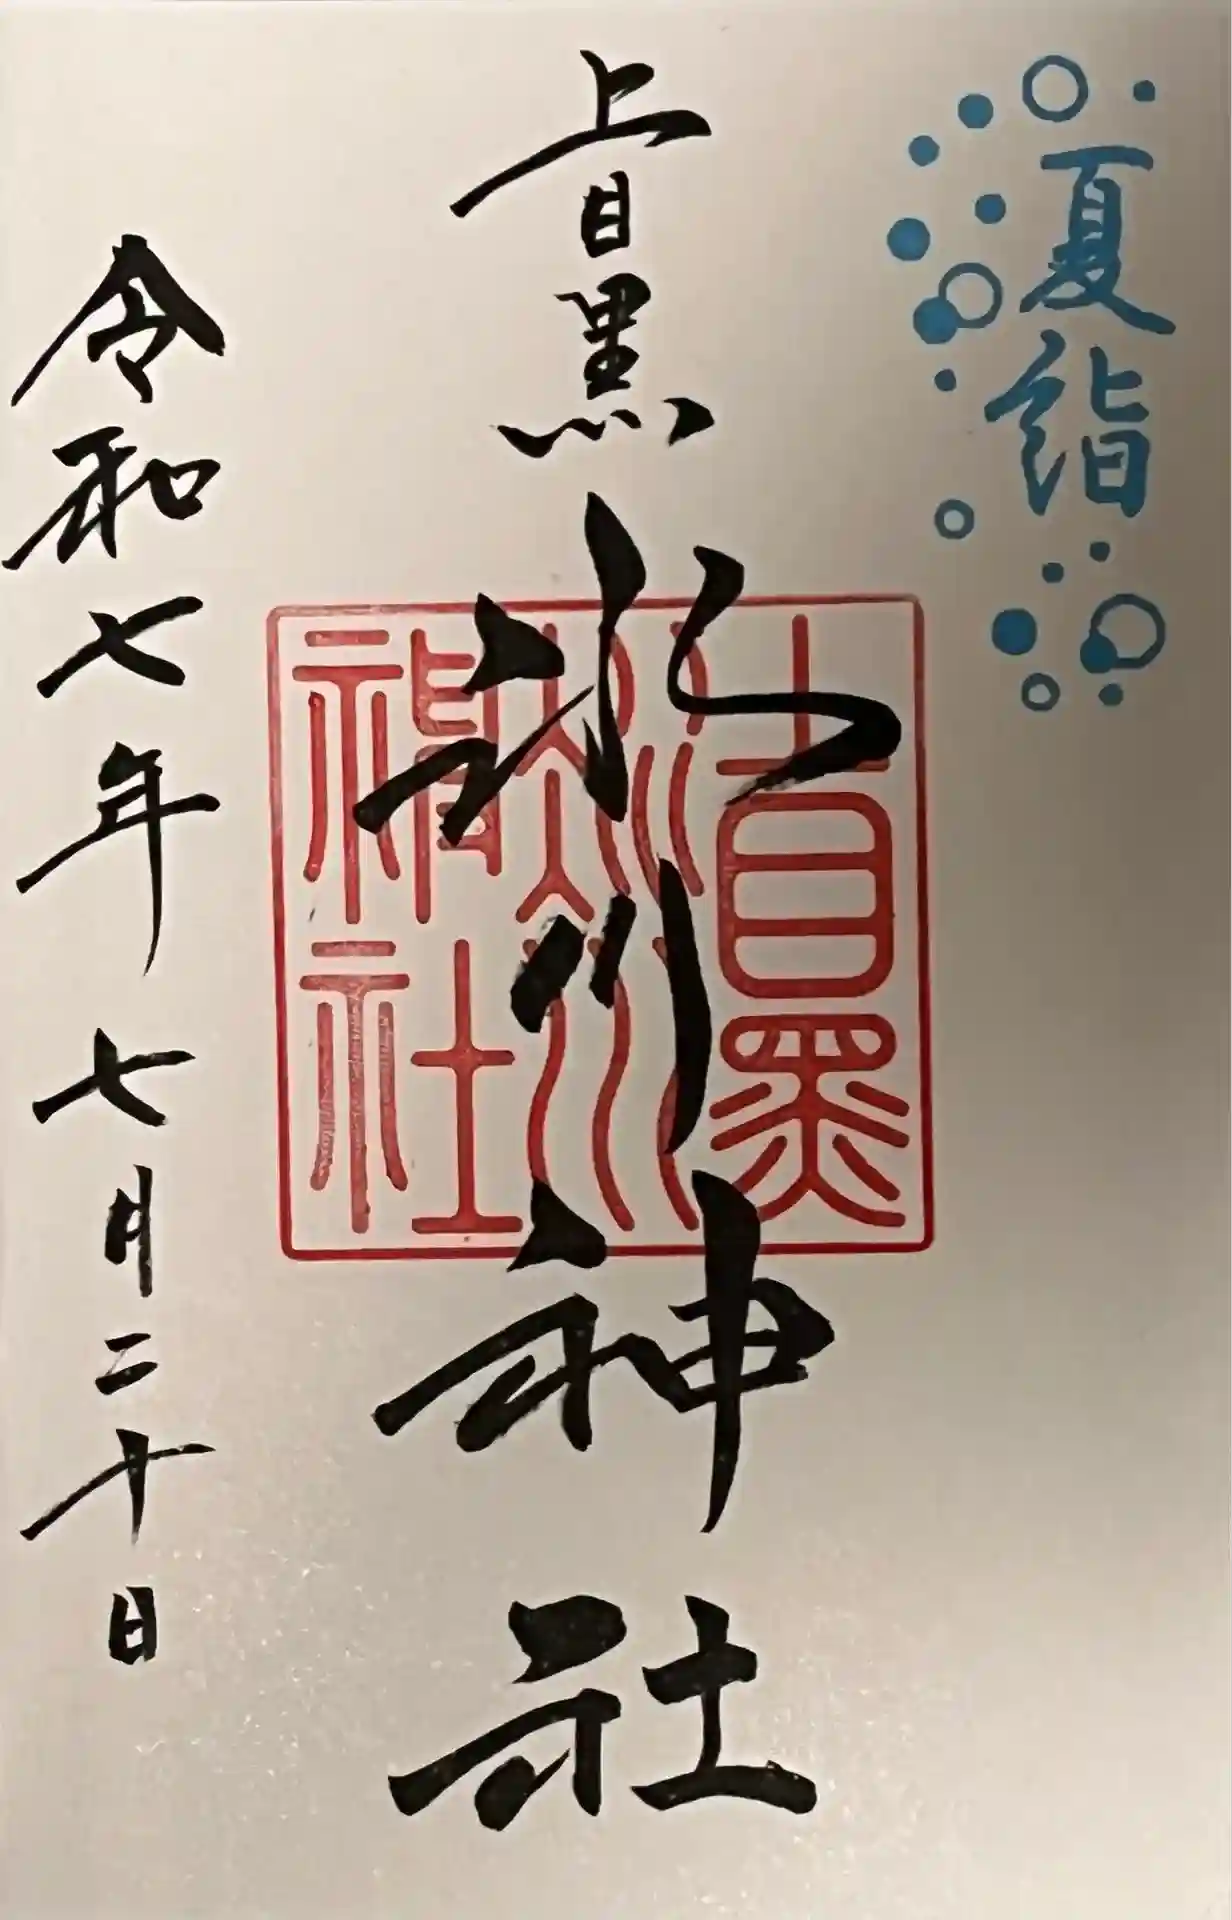 夏詣
上目黒氷川神社
上目黑
氷川
神社
令和七年七月二十日